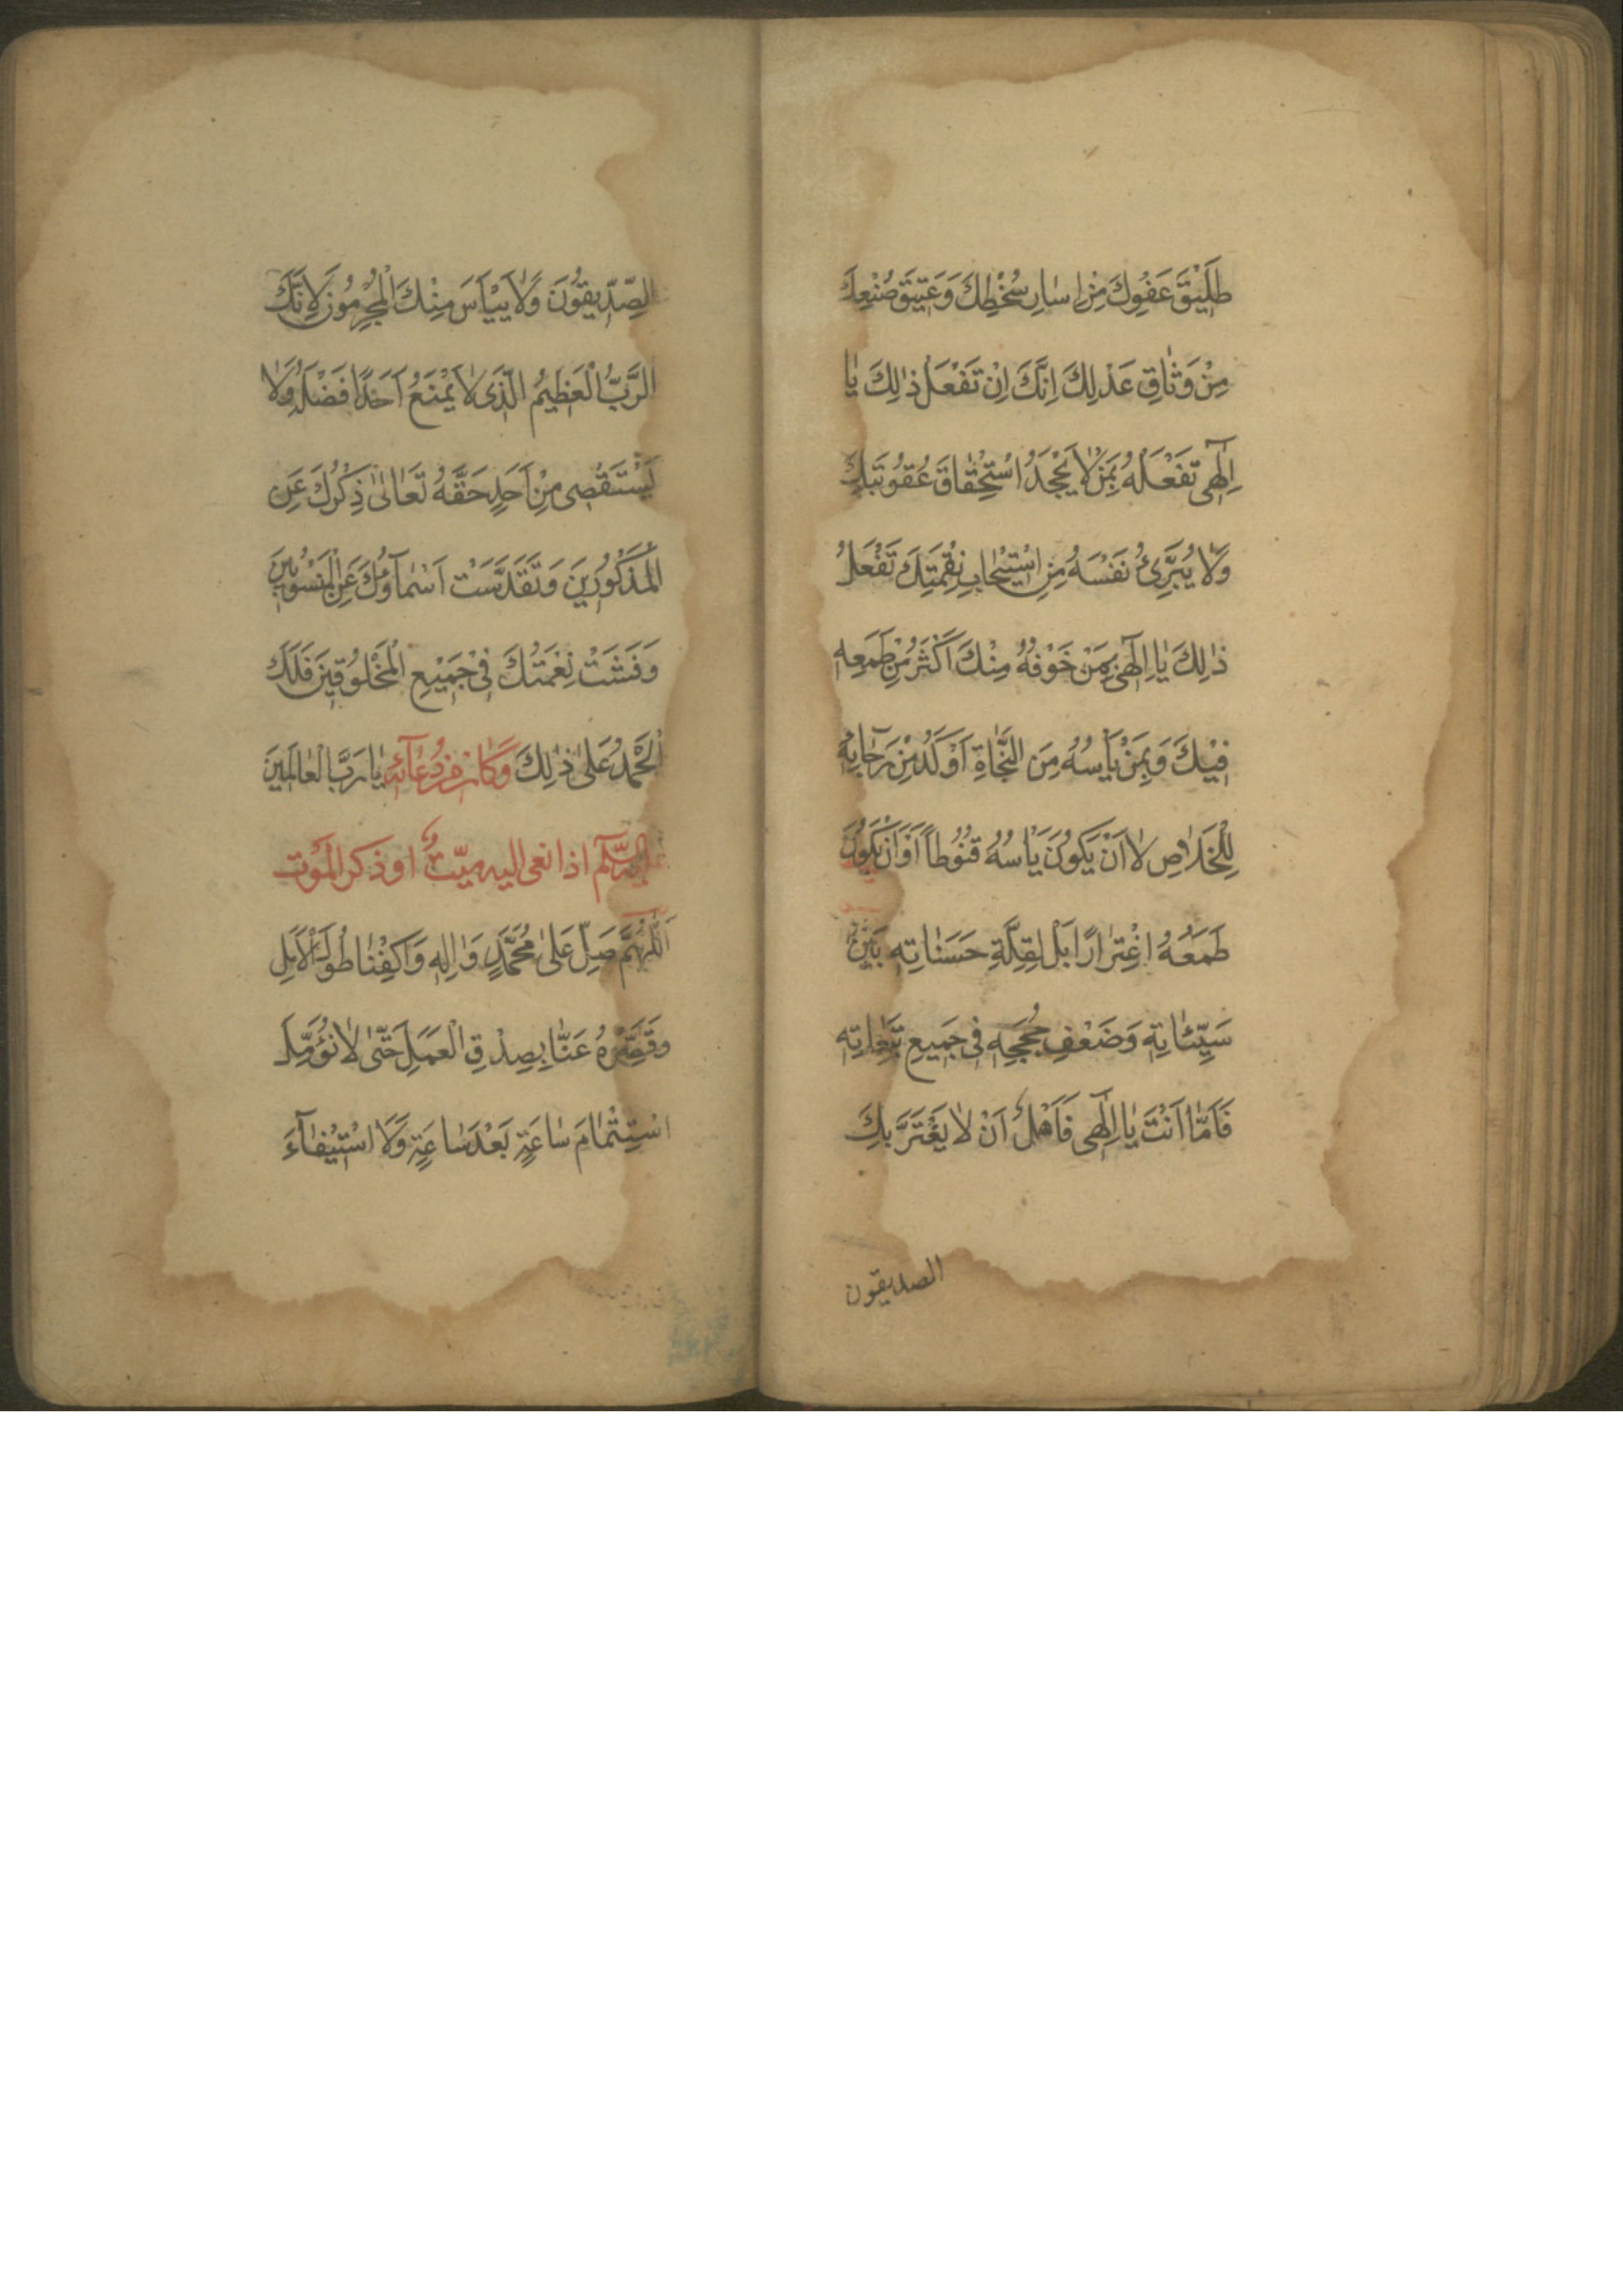 طَلِيْقَ عَفْوِكَ مِنْ اِسٰارِ سُخْطِكَ وَعَتِيْقَ صُنْعِكَ
مِنْ وَثٰاقِ عَدْلِكَ اِنَّكَ اِنْ تَفْعَلْ ذٰلِكَ يٰا
اِلٰهِى تَفْعَلْهُ بِمَنْ لٰا يَجْحَدُ اسْتِحْقٰاقَ عُقُوبَتِكَ
وَلٰا يُبَرِّئُ نَفْسَهُ مِنِ اسْتِيْجٰابِ نِقْمَتِكَ تَفْعَلْ
ذٰلِكَ يٰا اِلٰهِى بِمَنْ خَوْفُهُ مِنْكَ اَكْثَرُ مِنْ طَمَعِهِ
فِيْكَ وَبِمَنْ يَأْسُهُ مِنَ النَّجٰاةِ اَوْكَدُ مِنْ رَجٰائِهِ
لِلْخَلٰاصِ لٰا اَنْ يَكُونَ يَاْسُهُ قُنُوطاً اَوْ اَنْ يَكُونَ
طَمَعُهُ اغْتِرٰارًا بَلْ لِقِلَّةِ حَسَنٰاتِهِ بَيْنَ
سَيِّئٰاتِهِ وَضَعْفِ حُجَجِهِ فِى جَمِيعِ تَبِعٰاتِهِ
فَاَمّٰا اَنْتَ يٰا اِلٰهِى فَاَهْلٌ اَنْ لٰا يَغْتَرَّ بِكَ
الصديقون
الصِّدِّيقُونَ وَلٰا يَيْاَسَ مِنْكَ الْمُجْرِمُونَ لِاَنَّكَ
الرَّبُّ الْعَظِيْمُ الَّذِى لٰا يَمْنَعُ اَحَدًا فَضْلَهُ وَلٰا
يَسْتَقْصِى مِنْ اَحَدٍ حَقَّهُ تَعٰالٰى ذِكْرُكَ عَنِ
الْمَذْكُورِينَ وَتَقَدَّسَتْ اَسْمٰآؤُكَ عَنِ الْمَنْسُوبِيْنَ
وَفَشَتْ نِعْمَتُكَ فِىْ جَمِيْعِ الْمَخْلُوقِينَ فَلَكَ
الْحَمْدُ عَلٰى ذٰلِكَ يٰا رَبَّ الْعٰالَمِينَ وَكٰانَ مِنْ دُعٰآئِهِ
عليه السَّلٰم اذا نعى اليه ميّتٌ او ذكر الْمَوْت
اَللّٰهُمَّ صَلِّ عَلٰى مُحَمَّدٍ وَاٰلِهِ وَاكْفِنٰا طُولَ الْاَمَلِ
وَقَصِّرْهُ عَنّٰا بِصِدْقِ الْعَمَلِ حَتّٰى لٰا نُؤَمِّلَ
اسْتِتْمٰامَ سٰاعَةٍ بَعْدَ سٰاعَةٍ وَلَا اسْتِيْفٰآءَ